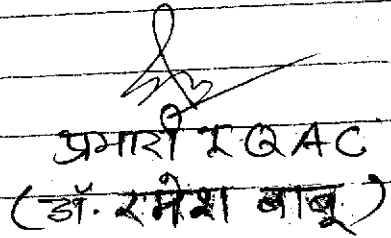 प्रभारी IQAC
(डॉ. रमेश बाबू)